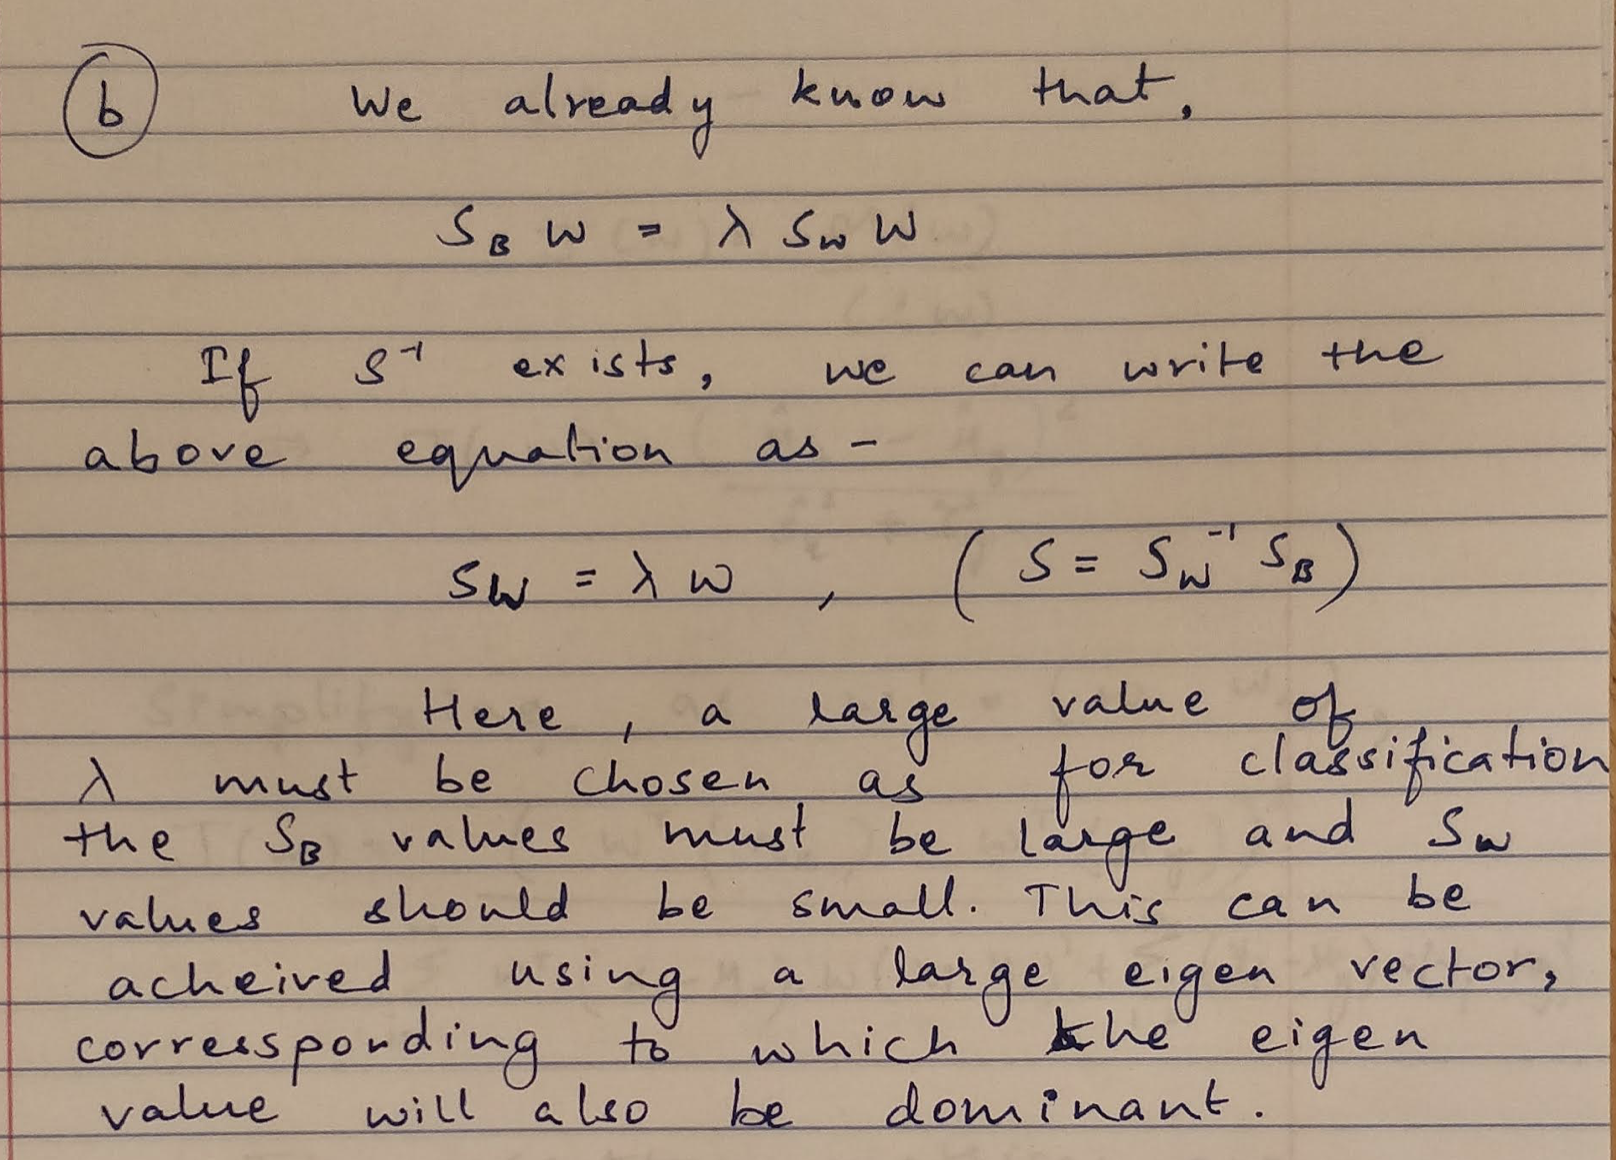 b We already know that,
S_B W = λ S_w W
If S⁻¹ exists, we can write the
above equation as -
SW = λ w , ( S = S_W⁻¹ S_B )
Here , a large value of
λ must be chosen as for classification
the S_B values must be large and S_w
values should be small. This can be
acheived using a large eigen vector,
corressponding to which the eigen
value will also be dominant.